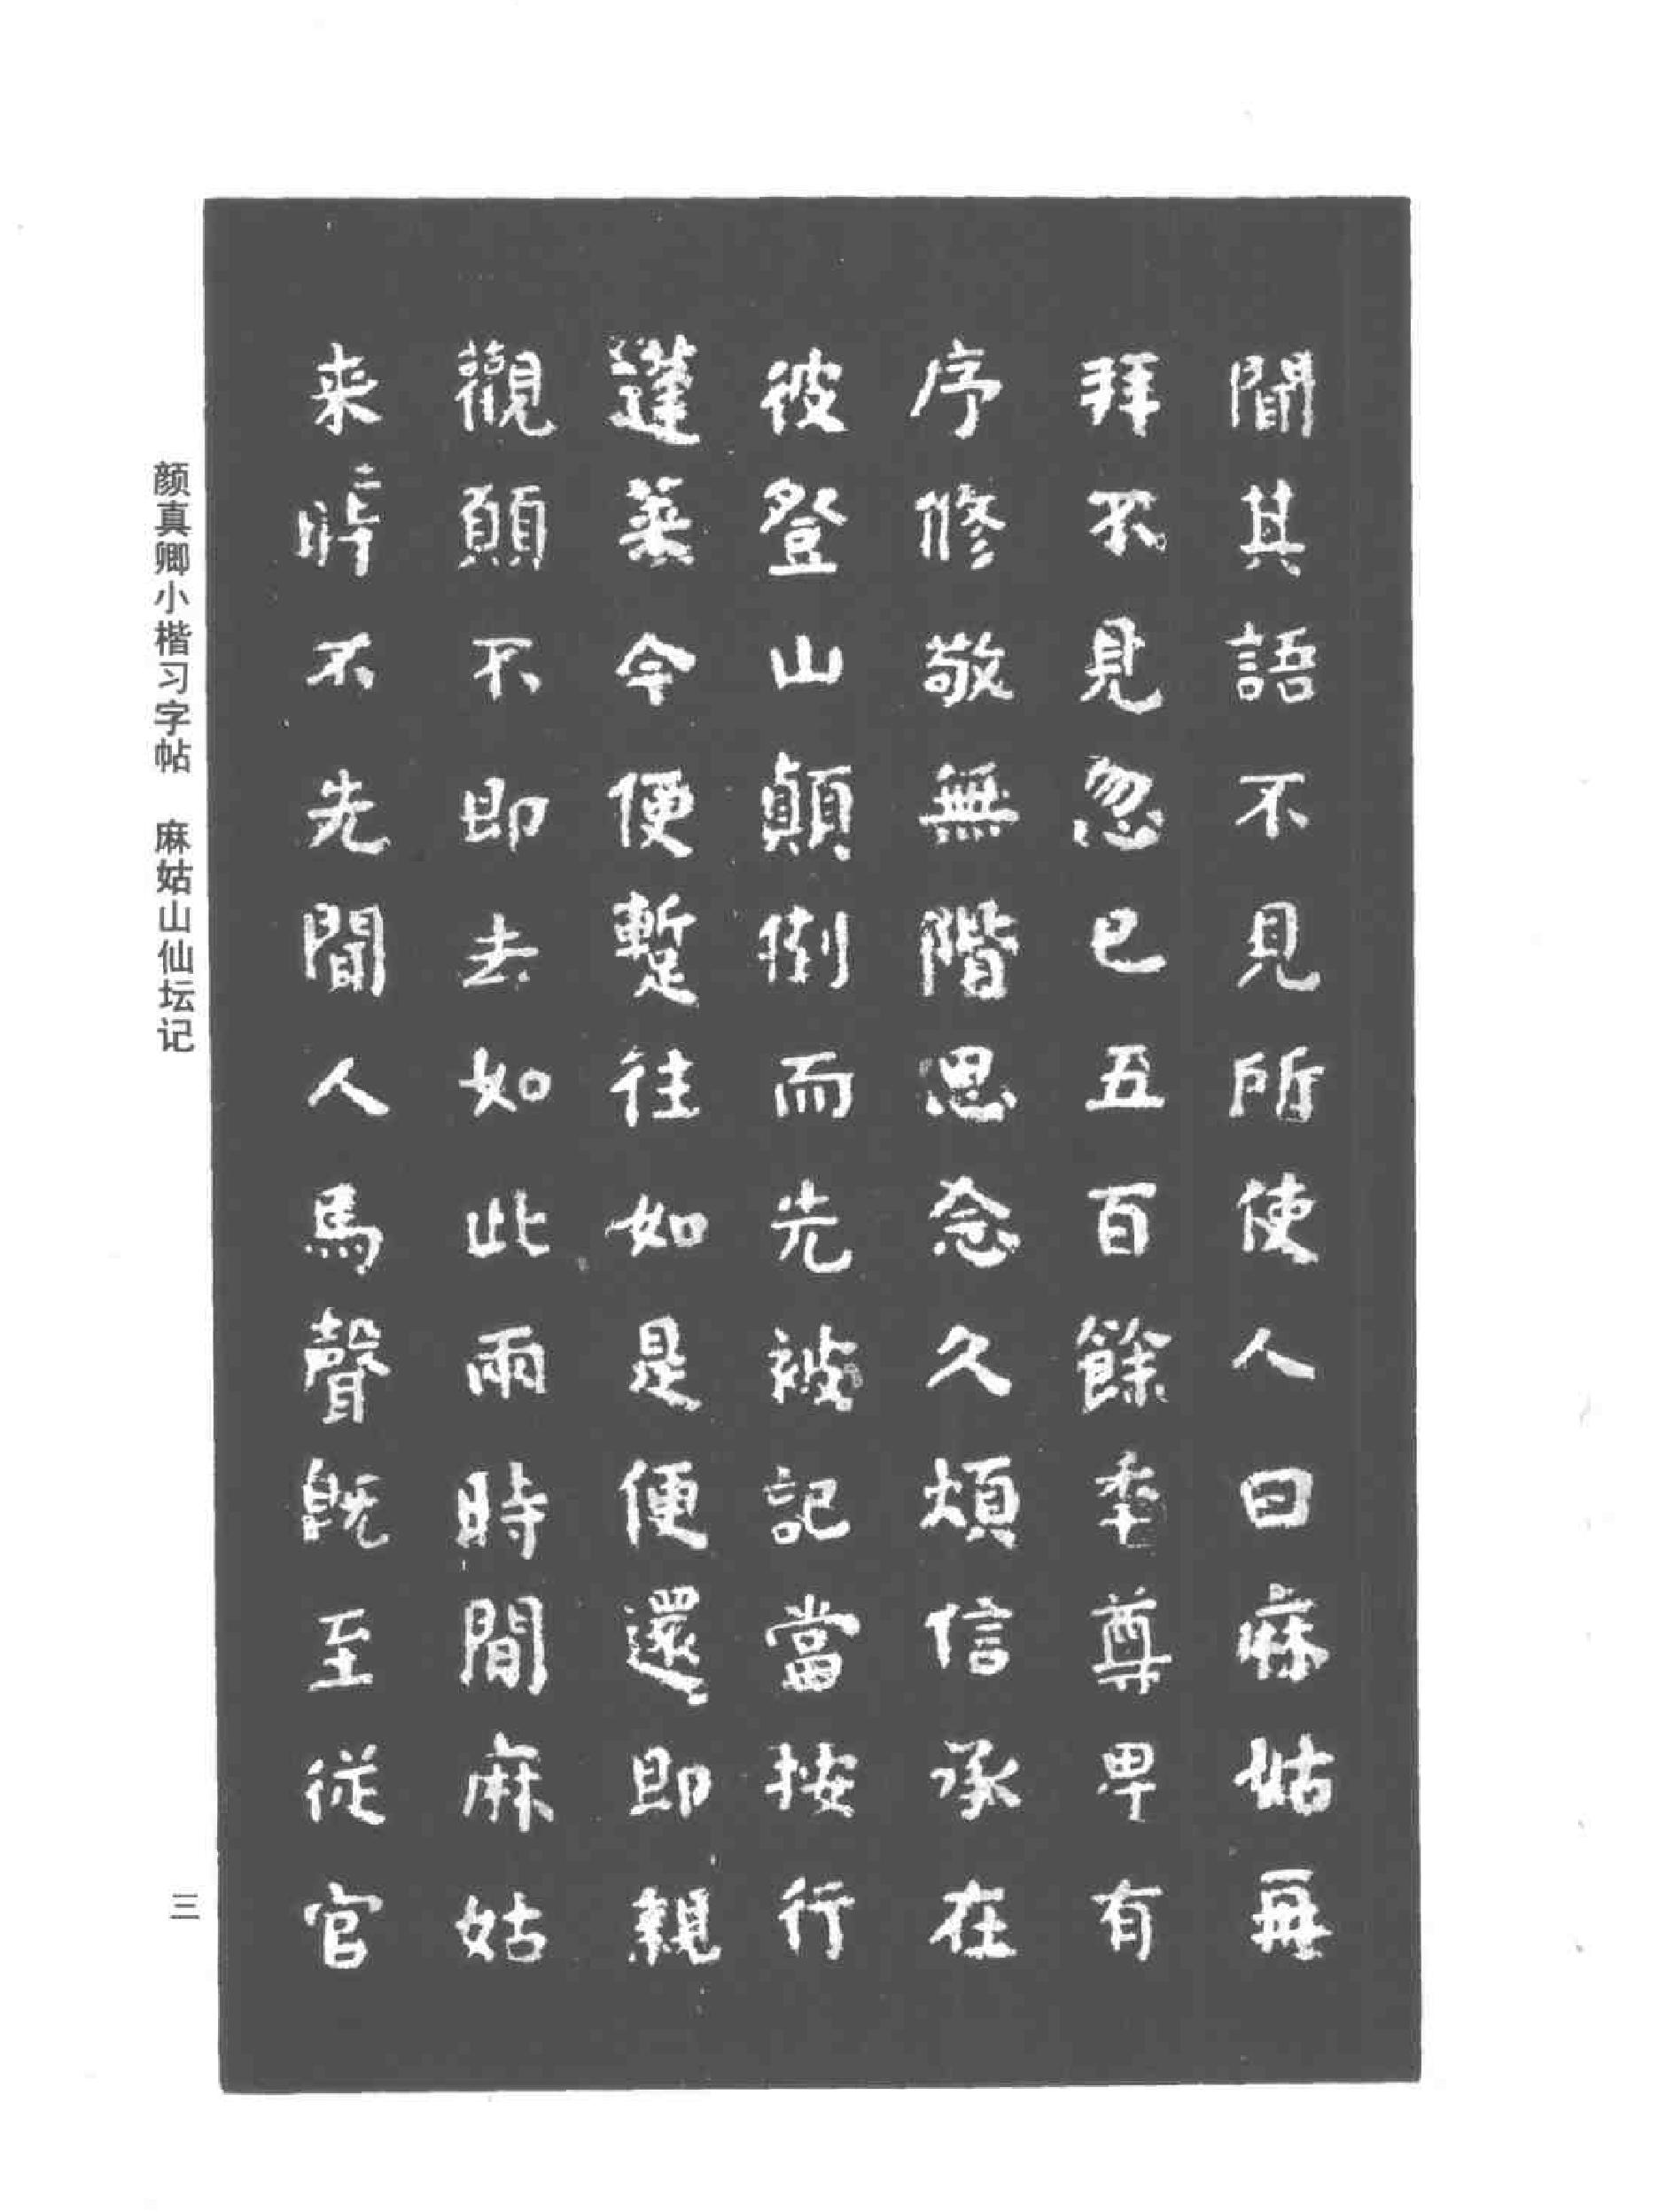 聞其語不見所使人曰麻姑再
拜不見忽已五百餘年尊卑有
序修敬無階思念久煩信承在
彼登山顛倒而先被記當按行
蓬萊今便蹔往如是便還即親
觀願不即去如此兩時間麻姑
来時不先聞人馬聲既至從官
颜真卿小楷习字帖 麻姑山仙坛记
三